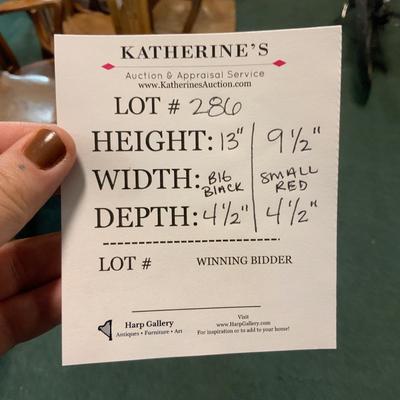 KATHERINE'S
Auction & Appraisal Service
www.KatherinesAuction.com
LOT # 286
HEIGHT: 13" 9 1/2"
WIDTH: BIG BLACK SMALL RED
DEPTH: 4 1/2" 4 1/2"
LOT # WINNING BIDDER
Harp Gallery
Antiques • Furniture • Art
Visit
www.HarpGallery.com
For inspiration or to add to your home!